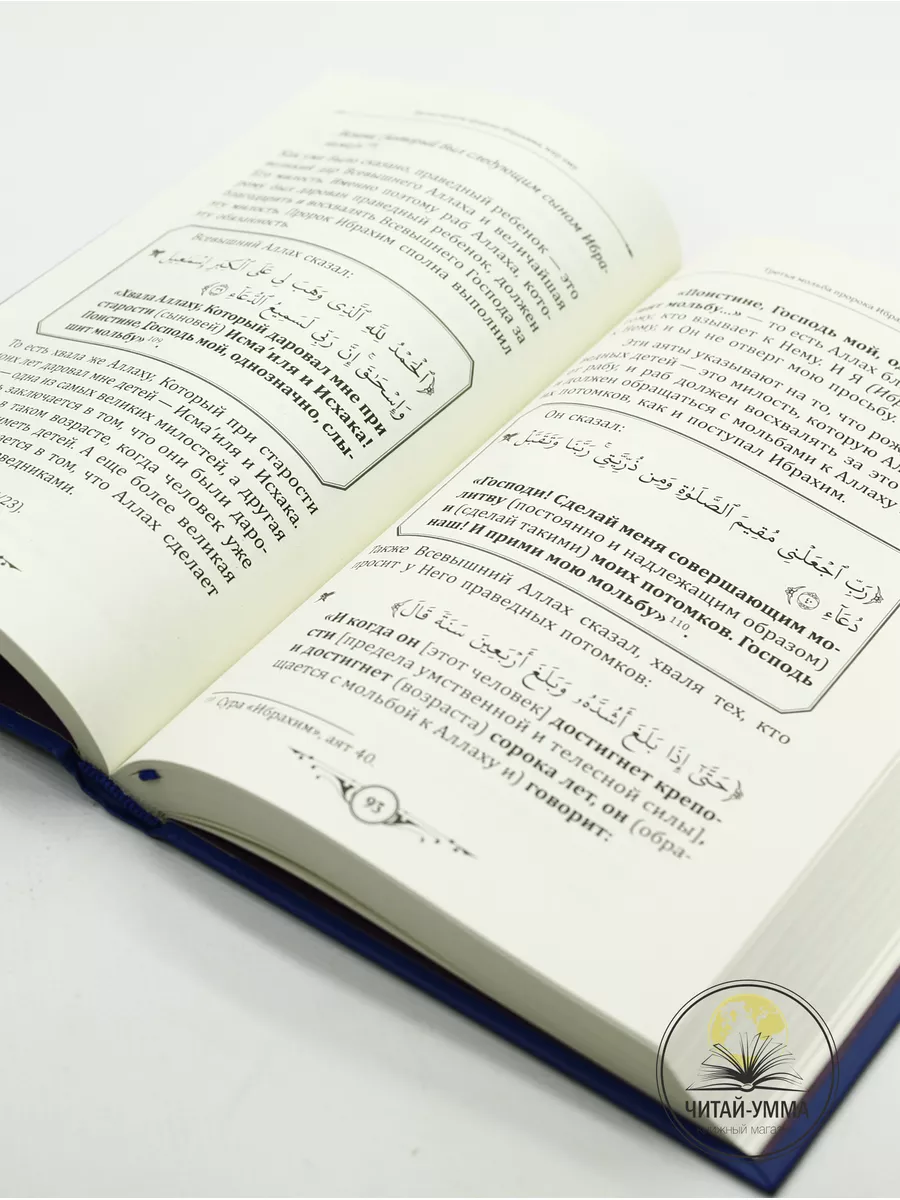 Исхака, который был следующим сыном Ибра-
Как уже было сказано, праведный ребенок — это
великий дар Всевышнего Аллаха и величайшая
Его милость. Именно поэтому раб Аллаха, кото-
рому был дарован праведный ребенок, должен
благодарить и восхвалять Всевышнего Господа за
эту милость. Пророк Ибрахим сполна выполнил
эту обязанность.
Всевышний Аллах сказал:
﴿ٱلْحَمْدُ لِلَّهِ ٱلَّذِى وَهَبَ لِى عَلَى ٱلْكِبَرِ إِسْمَٰعِيلَ
وَإِسْحَٰقَ ۚ إِنَّ رَبِّى لَسَمِيعُ ٱلدُّعَآءِ ﴾
«Хвала Аллаху, Который даровал мне при
старости (сыновей) Исма'иля и Исхака!
Поистине, Господь мой, однозначно, слы-
шит мольбу» 109
То есть хвала же Аллаху, Который при старости
моих лет даровал мне детей — Исма'иля и Исхака.
— одна из самых великих милостей, а другая
заключается в том, что они были даро-
в таком возрасте, когда человек уже
иметь детей. А еще более великая
ается в том, что Аллах сделает
ведниками.
/23).
Третья мольба пророка Ибра
«Поистине, Господь мой, о
шит мольбу...» — то есть Аллах бл
кому, кто взывает к Нему. И Я (Иб
к нему, и Он не отверг мою просьбу.
Эти аяты указывают на то, что рож
одных детей — это милость, которую Ал
рабу, и раб должен восхвалять за это
должен обращаться с мольбами к Аллаху
их потомков, как и поступал Ибрахим.
Он сказал:
﴿رَبِّ ٱجْعَلْنِى مُقِيمَ ٱلصَّلَوٰةِ وَمِن ذُرِّيَّتِى ۚ رَبَّنَا وَتَقَبَّلْ
دُعَآءِ ٤٠﴾
«Господи! Сделай меня совершающим мо-
литву (постоянно и надлежащим образом)
и (сделай такими) моих потомков. Господь
наш! И прими мою мольбу» 110.
Также Всевышний Аллах сказал, хваля тех, кто
просит у Него праведных потомков:
﴿حَتَّىٰٓ إِذَا بَلَغَ أَشُدَّهُۥ وَبَلَغَ أَرْبَعِينَ سَنَةً قَالَ﴾
«И когда он [этот человек] достигнет крепо-
сти [предела умственной и телесной силы],
и достигнет (возраста) сорока лет, он (обра-
щается с мольбой к Аллаху и) говорит:
Сура «Ибрахим», аят 40.
93
ЧИТАЙ-УММА